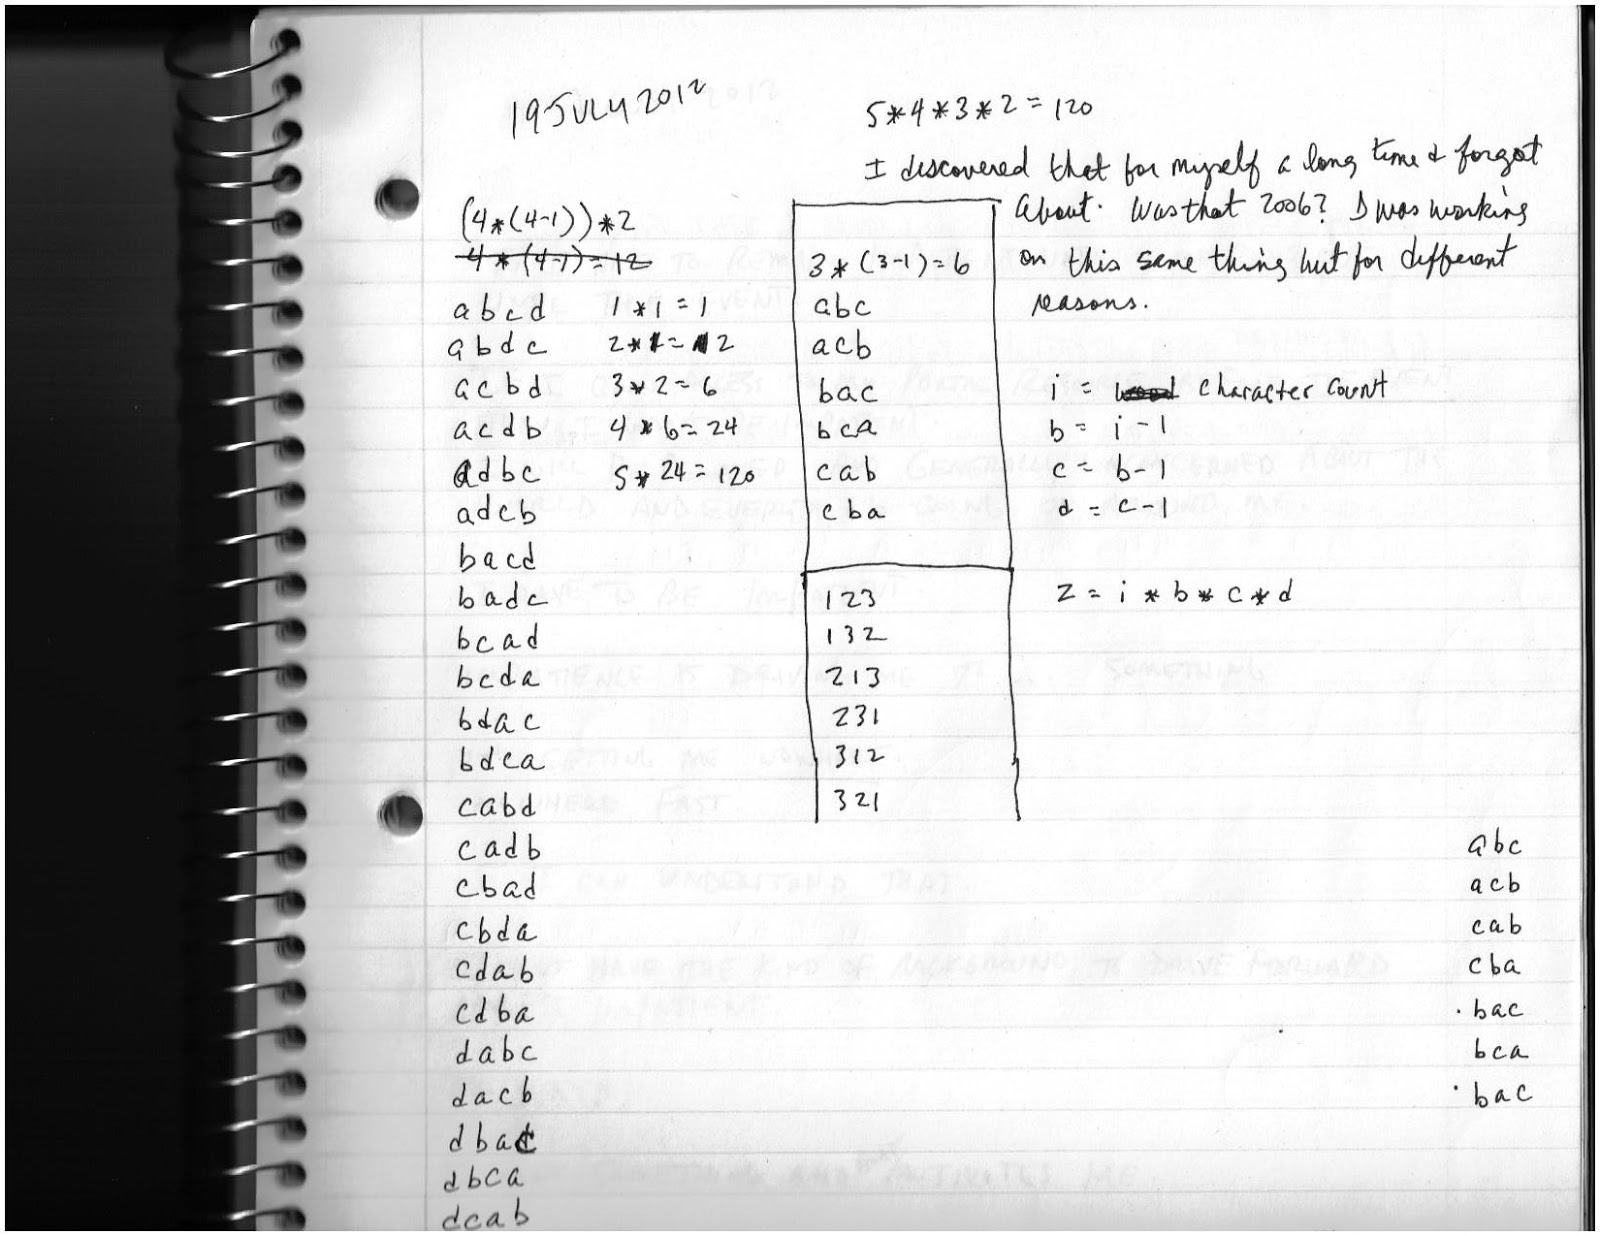 19 JULY 2012
5*4*3*2=120
I discovered that for myself a long time & forgot
about. Was that 2006? I was working
on this same thing but for different
reasons.
(4*(4-1))*2
4*(4-1)=12
abcd 1*1=1
abdc 2*1=2
acbd 3*2=6
acdb 4*6=24
adbc 5*24=120
adcb
bacd
badc
bcad
bcda
bdac
bdca
cabd
cadb
cbad
cbda
cdab
cdba
dabc
dacb
dbac
dbca
dcab
3*(3-1)=6
abc
acb
bac
bca
cab
cba
123
132
213
231
312
321
i = character count
b = i-1
c = b-1
d = c-1
z = i*b*c*d
abc
acb
cab
cba
. bac
bca
. bac